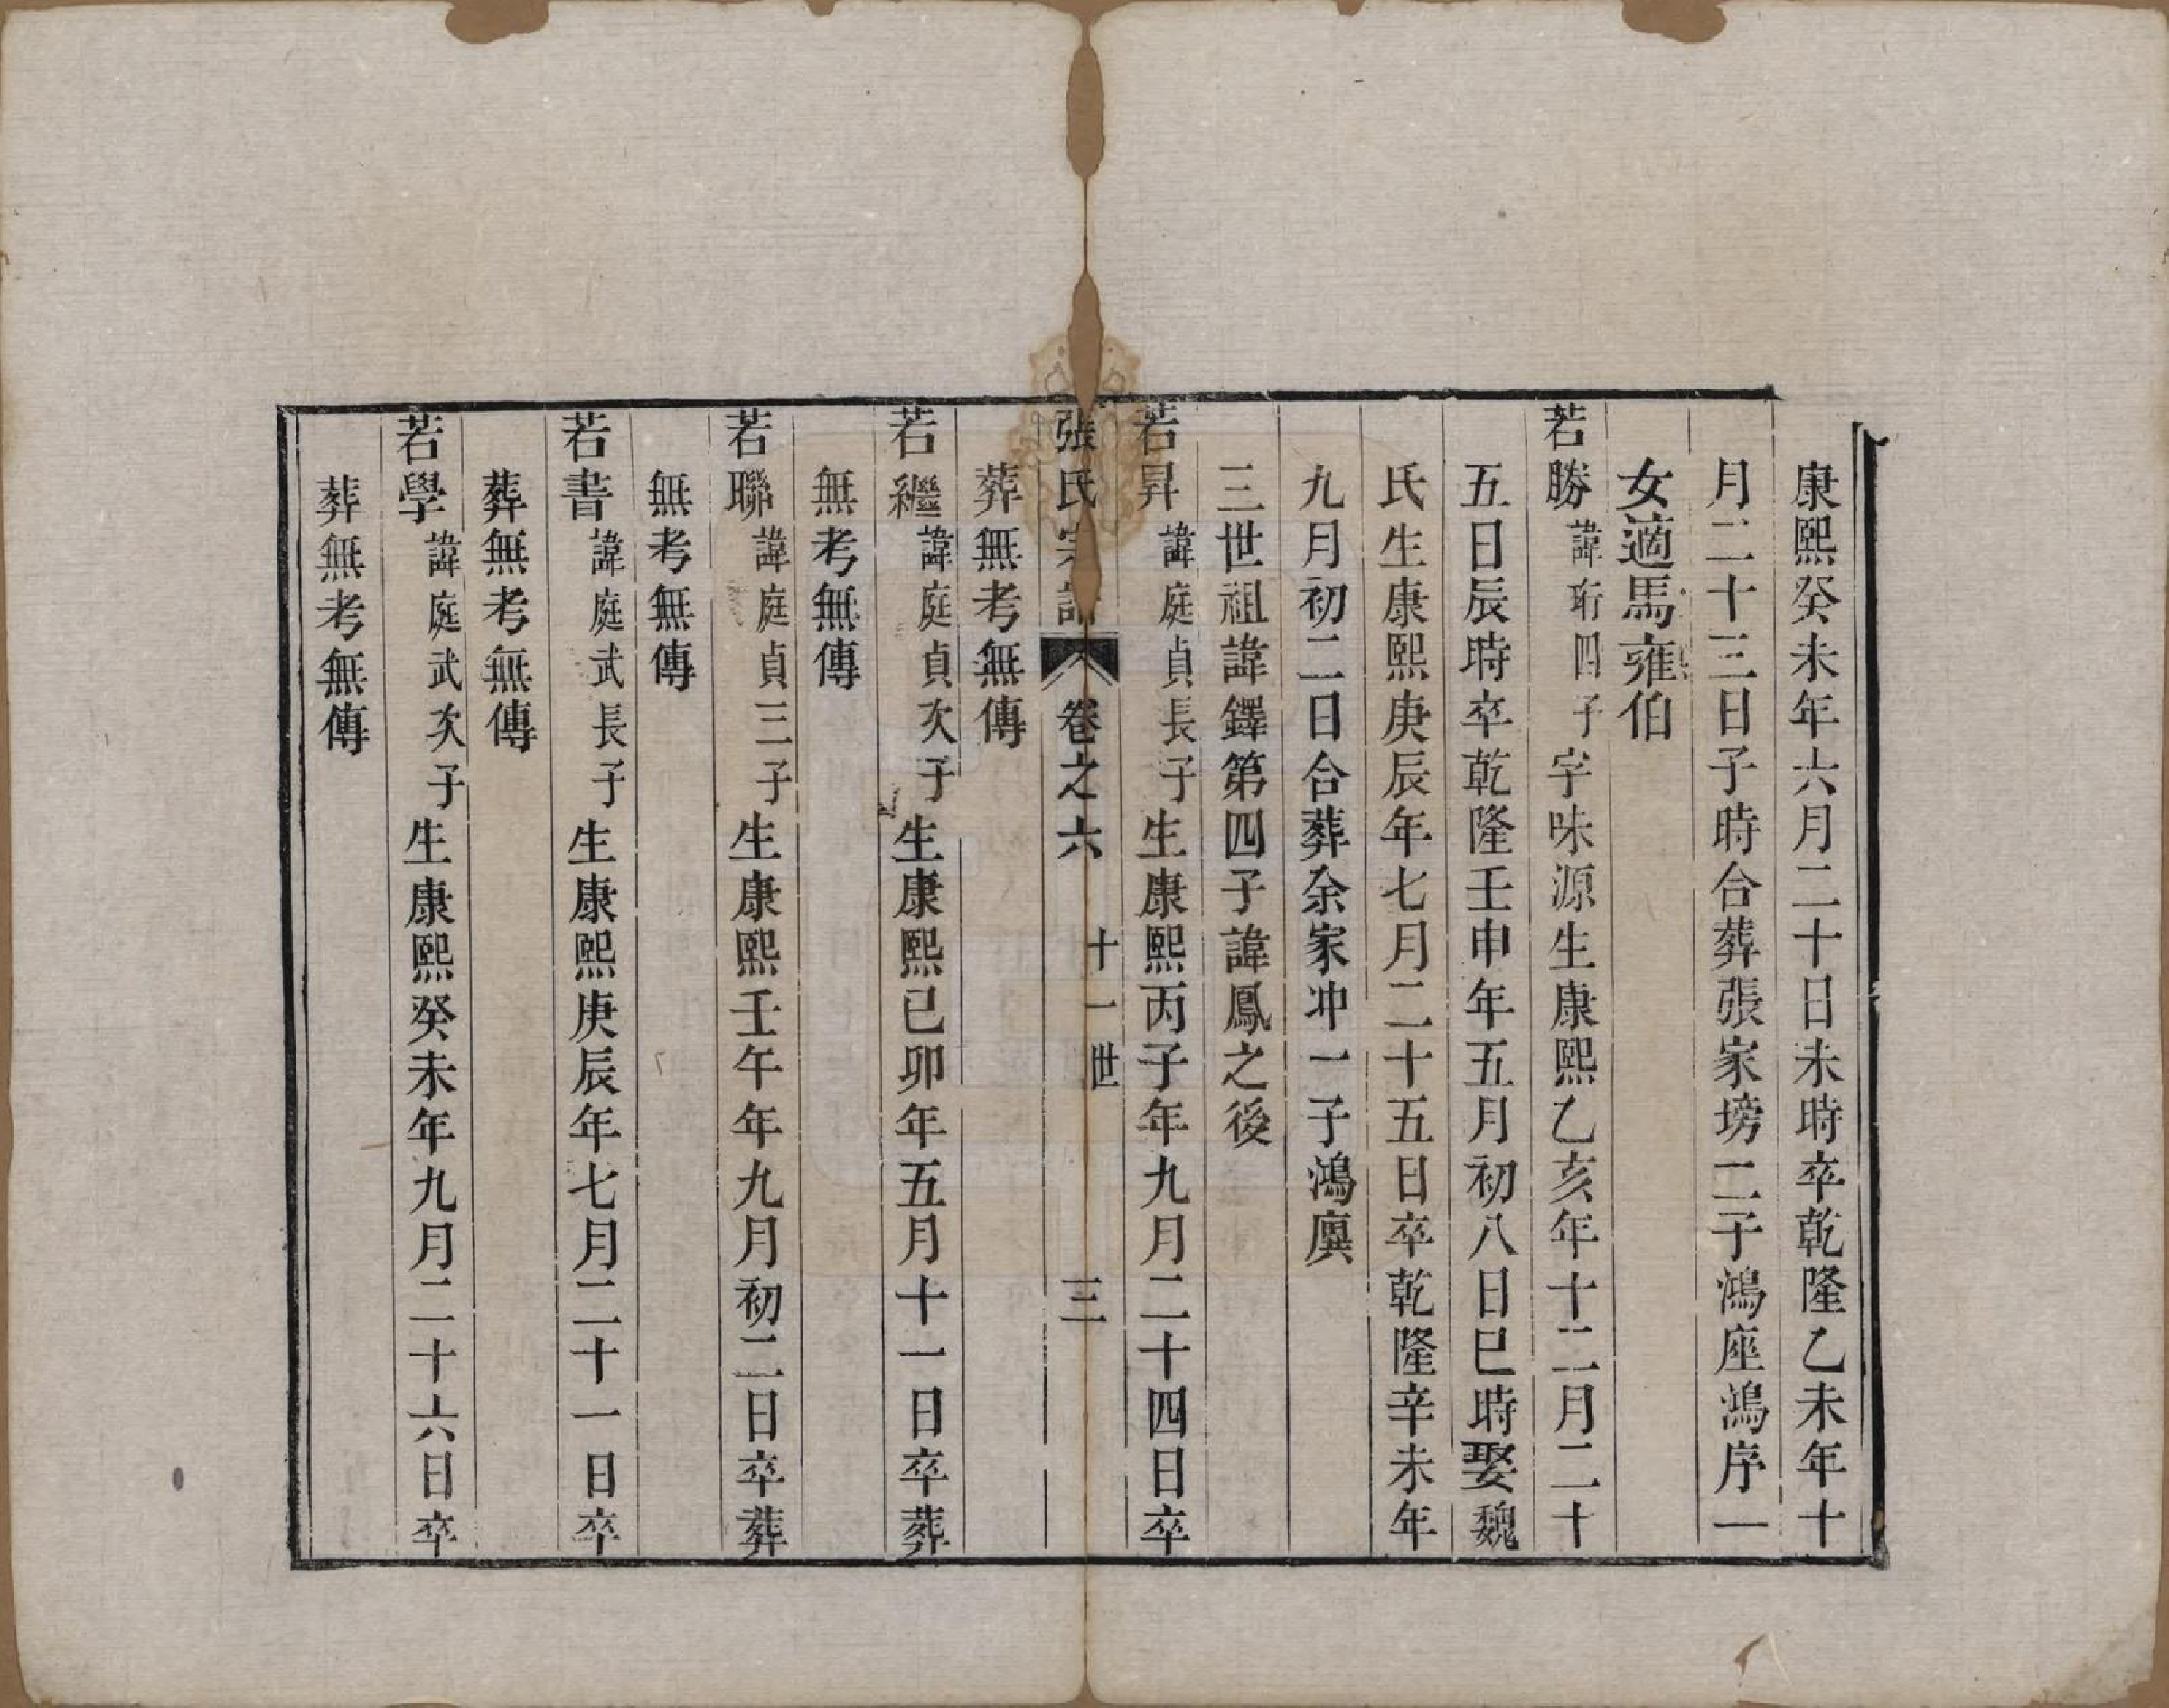 康熙癸未年六月二十日未時卒乾隆乙未年十
月二十三日子時合葬張家塝二子鴻座鴻序一
女適馬雍伯
若勝諱珩四子字味源生康熙乙亥年十二月二十
五日辰時卒乾隆壬申年五月初八日巳時娶魏
氏生康熙庚辰年七月二十五日卒乾隆辛未年
九月初二日合葬余家冲一子鴻廙
三世祖諱鐸第四子諱鳳之後
若昇諱庭貞長子生康熙丙子年九月二十四日卒
葬無考無傳
張氏宗譜 卷之六 十一世 三
若繼諱庭貞次子生康熙己卯年五月十一日卒葬
無考無傳
若聯諱庭貞三子生康熙壬午年九月初二日卒葬
無考無傳
若書諱庭武長子生康熙庚辰年七月二十一日卒
葬無考無傳
若學諱庭武次子生康熙癸未年九月二十六日卒
葬無考無傳